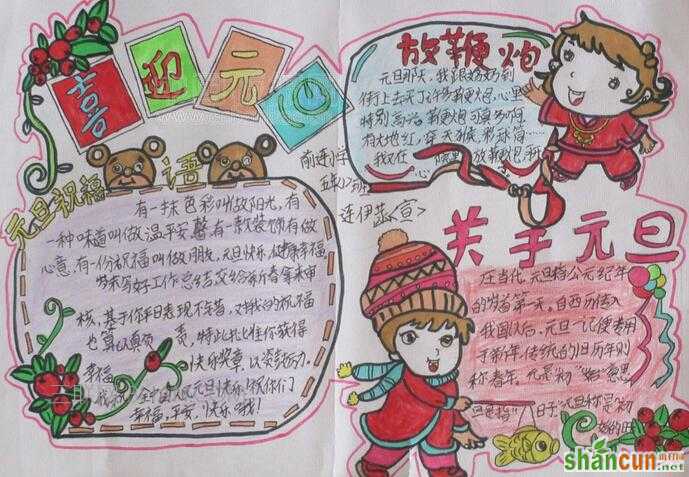 喜迎元旦
元旦祝福语
有一抹色彩叫做阳光,有
一种味道叫做温馨,有一款装饰叫做
心意,有一份祝福叫做朋友,元旦快乐,健康幸福,
多来写好工作总结,交给新春拿来审
核,基于你平日表现不错,对我的祝福
也算认真负责,特此批准你获得
幸福快乐奖章,以资鼓励,
祝全中国人民元旦快乐!祝你们
幸福,平安,快乐哦!
前连小学
连伊蕊宣
放鞭炮
元旦那天,我跟奶奶到
街上去买了许多鞭炮,心里
特别高兴,鞭炮可真多啊,
有大地红,穿天猴,彩珠筒
我在院里放鞭炮,开
心
关于元旦
在当代,元旦指公元纪年
的岁首第一天。自西历传入
我国以后,元旦一词便专用
于新年,传统的旧历年则
称春年。元是"初""始"意思
旦是指"日子",元旦称是"初
始的日
shancun
.net